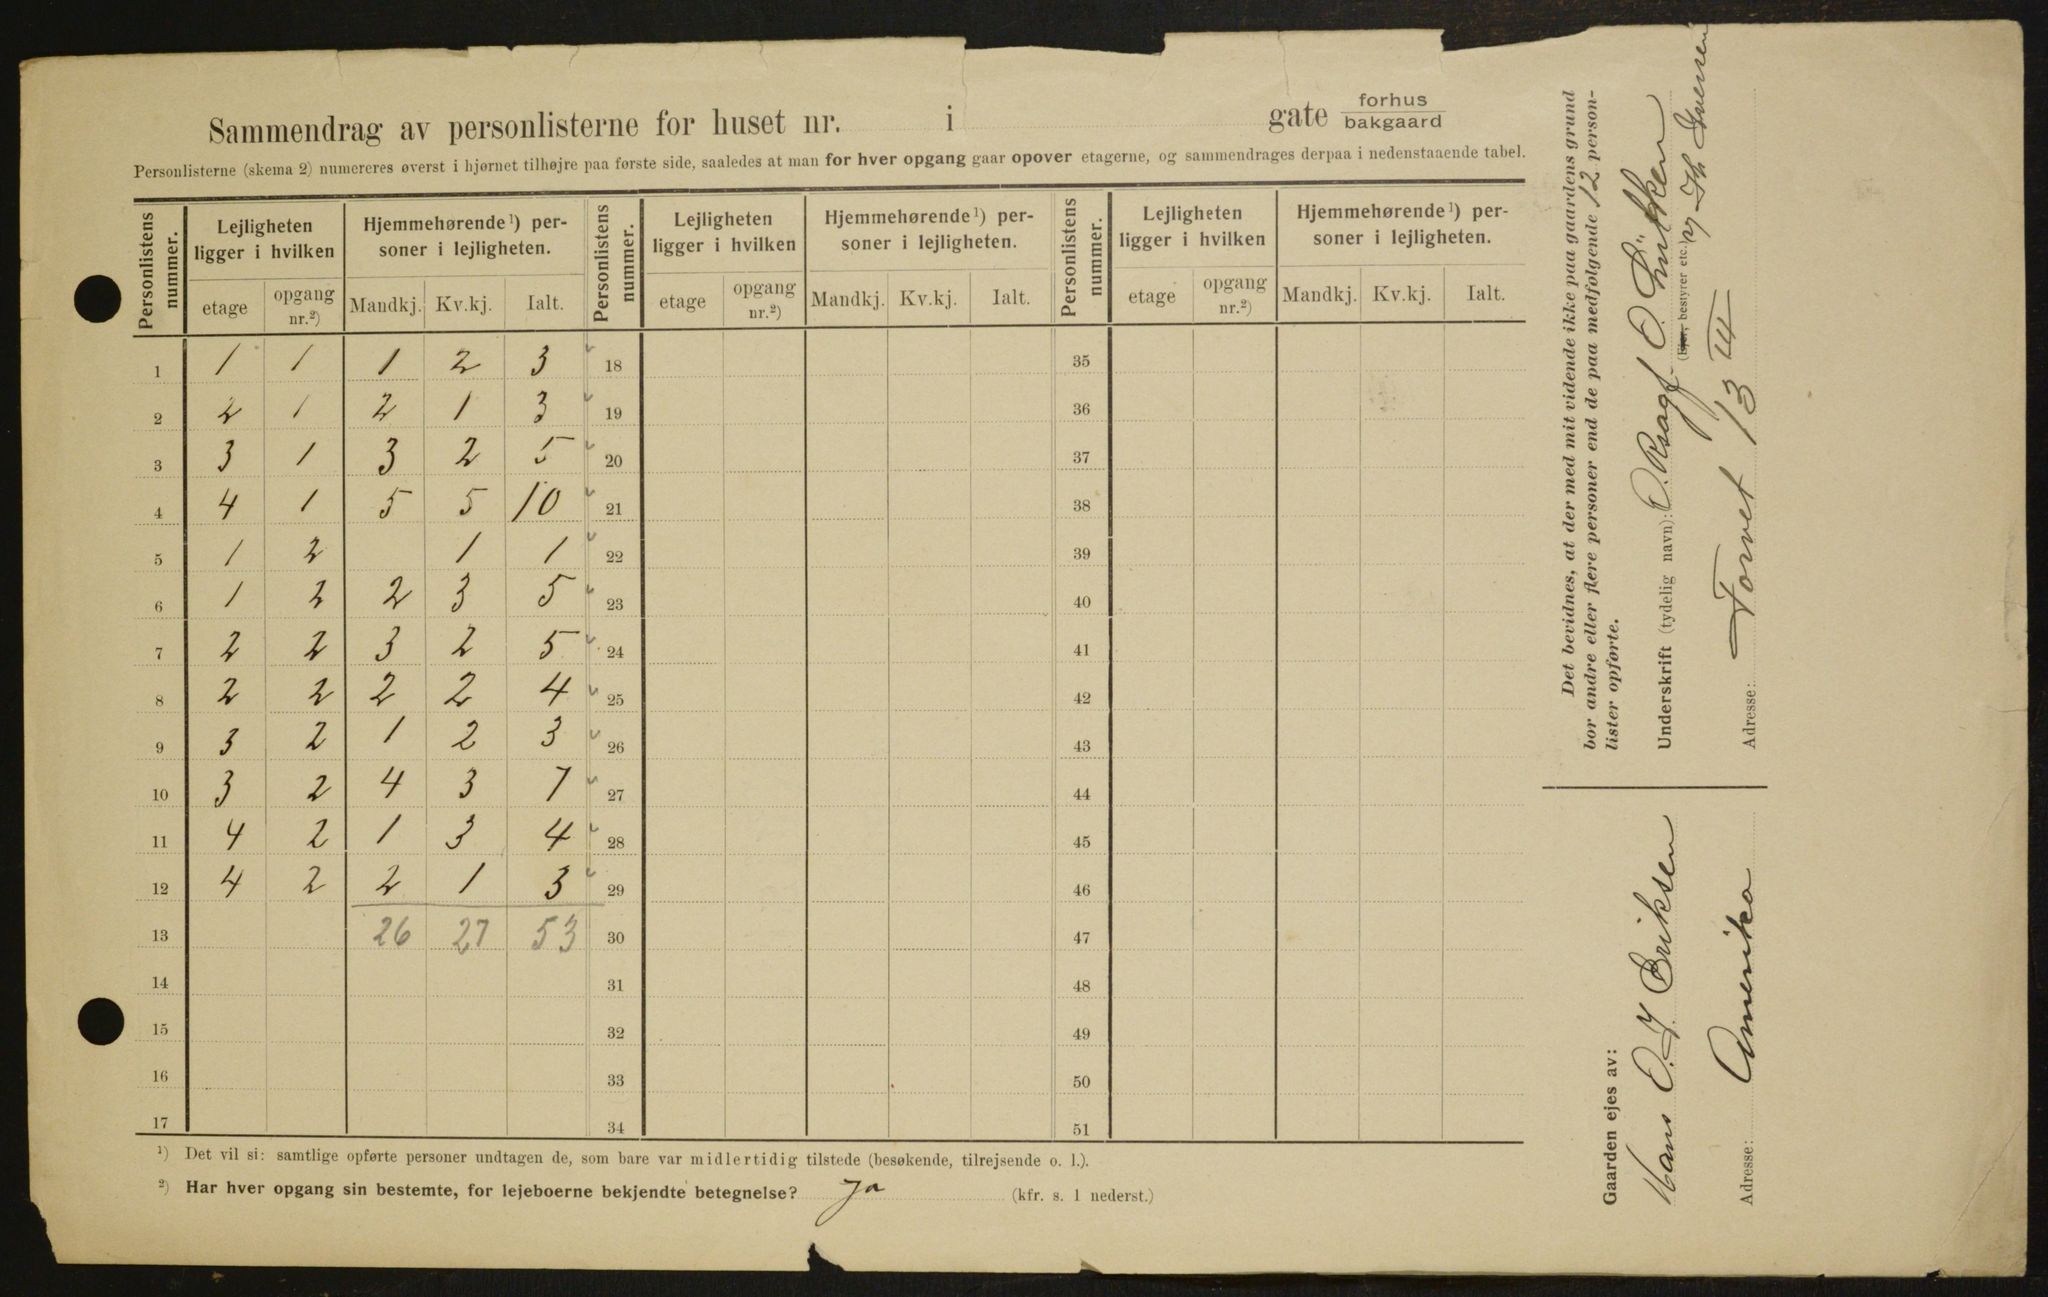 Sammendrag av personlisterne for huset nr. i gate forhus bakgaard
Personlisterne (skema 2) numereres øverst i hjørnet tilhøjre paa første side, saaledes at man for hver opgang gaar opover etagerne, og sammendrages derpaa i nedenstaaende tabel.
Personlistens nummer. Lejligheten ligger i hvilken Hjemmehørende¹) personer i lejligheten. Personlistens nummer. Lejligheten ligger i hvilken Hjemmehørende¹) personer i lejligheten. Personlistens nummer. Lejligheten ligger i hvilken Hjemmehørende¹) personer i lejligheten.
etage opgang nr.²) Mandkj. Kv.kj. Ialt. etage opgang nr.²) Mandkj. Kv.kj. Ialt. etage opgang nr.²) Mandkj. Kv.kj. Ialt.
1 1 1 1 2 3 18 35
2 2 1 2 1 3 19 36
3 3 1 3 2 5 20 37
4 4 1 5 5 10 21 38
5 1 2 1 1 22 39
6 1 2 2 3 5 23 40
7 2 2 3 2 5 24 41
8 2 2 2 2 4 25 42
9 3 2 1 2 3 26 43
10 3 2 4 3 7 27 44
11 4 2 1 3 4 28 45
12 4 2 2 1 3 29 46
13 26 27 53 30 47
14 31 48
15 32 49
16 33 50
17 34 51
¹) Det vil si: samtlige opførte personer undtagen de, som bare var midlertidig tilstede (besøkende, tilrejsende o. l.).
²) Har hver opgang sin bestemte, for lejeboerne bekjendte betegnelse? Ja (kfr. s. 1 nederst.)
Det bevidnes, at der med mit vidende ikke paa gaardens grund
bor andre eller flere personer end de paa medfølgende 12 person-
lister opførte.
Underskrift (tydelig navn): O.
(Ejer, bestyrer etc.)
Adresse: Torvet 13 III
Gaarden ejes av:
Hans O. Eriksen
Adresse: Amerika